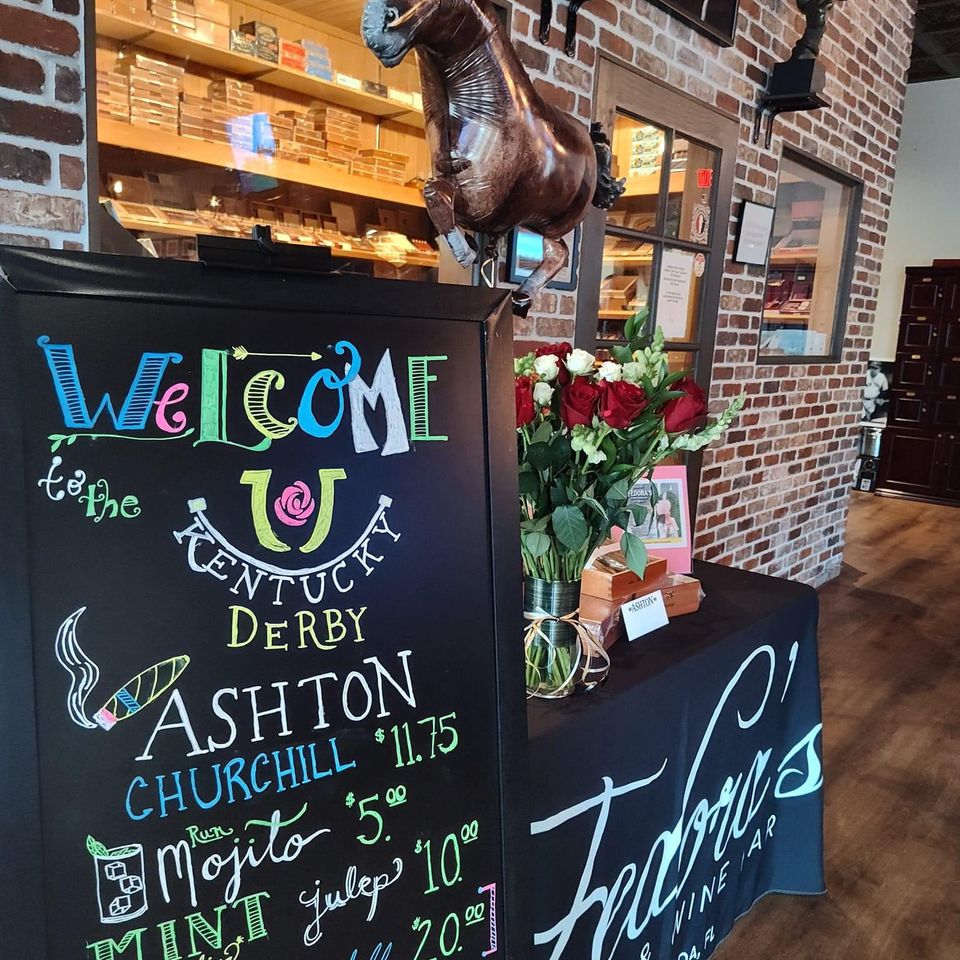 WeLCOME
to the
KENTUCKY
DERBY
ASHTON
CHURCHILL $11.75
Rum
Mojito $5.00
MINT julep $10.00
$20.00
FEDORA'S
ASHTON
Fedora's
& WINE BAR
DA, FL